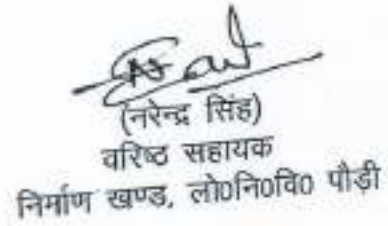 (नरेन्द्र सिंह)
वरिष्ठ सहायक
निर्माण खण्ड, लो०नि०वि० पौड़ी